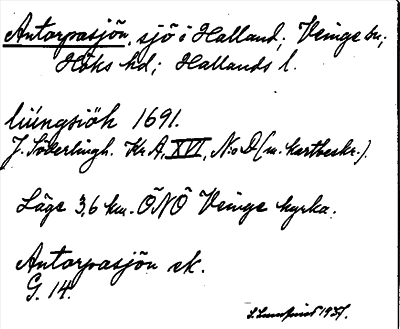 Antorpasjön, sjö i Halland; Veinge sn;
Höks hd; Hallands l.
liúngsiöh 1691.
J. Söderlingh. Kr. A, XVI, N:o D (m. kartbeskr.).
Läge 3,6 km. ÖNÖ Veinge kyrka.
Antorpasjön ek.
G. 14.
1937.